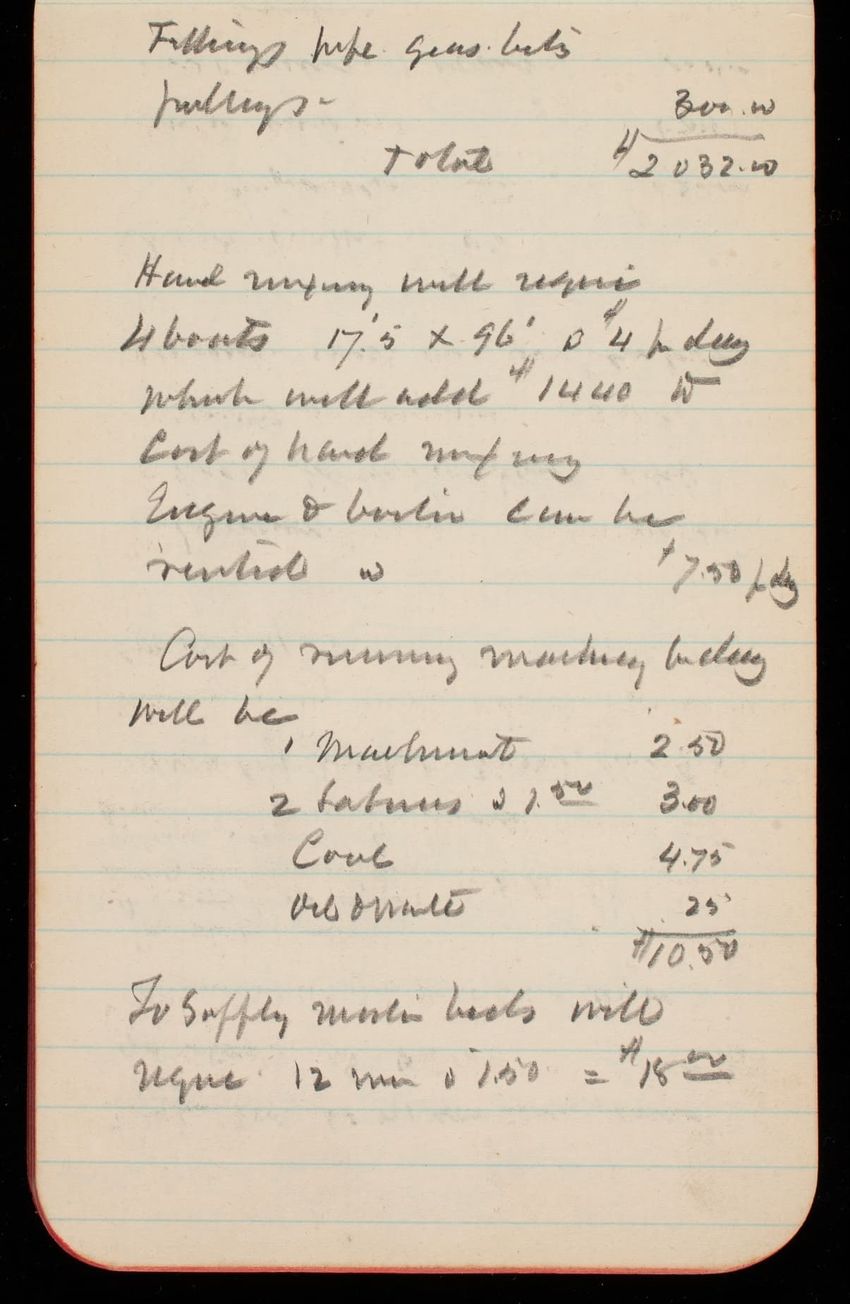 Fittings pipe gears belts
pulleys - 300.00
Total $2032.00
Hand mixing will require
4 boats 17'.5 x 96' @ $4 p day
which will add $1440 to
Cost of hand mixing
Engine & boiler can be
rented @ $7.50 p day
Cost of running machinery p day
will be
1 Machinist 2.50
2 laborers @ 1.50 3.00
Coal 4.75
Oil & waste 25
$10.50
To Supply mortar beds will
require 12 men @ 1.50 = $18.00